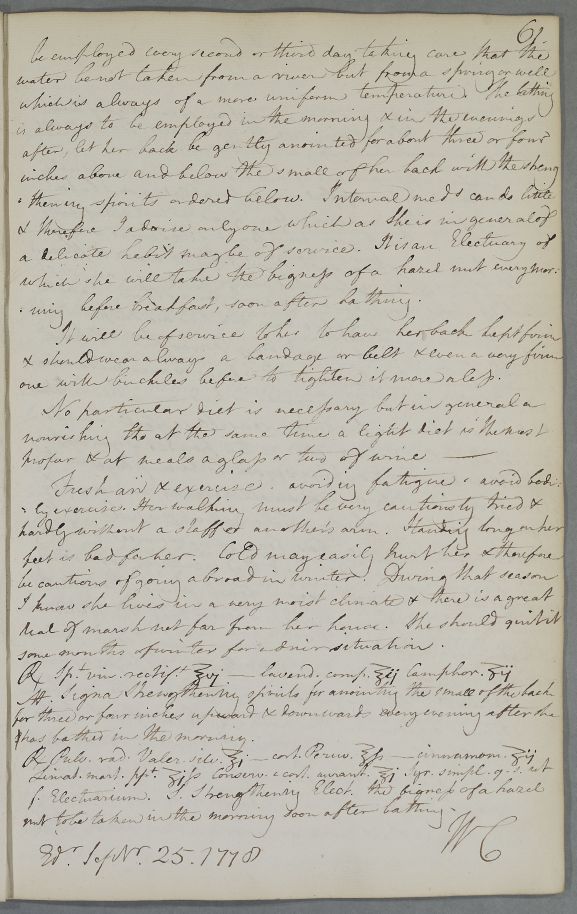 61.
be employed every second or third day taking care that the
water be not taken from a river but from a spring or well
which is always of a more uniform temperature. The bathing
is always to be employed in the morning & in the evenings
after, let her back be gently anointed for about three or four
inches above and below the small of her back with the streng
:thening spirits ordered below. Internal meds can do little
& therefore I advise only one which as She is in general of
a delicate habit may be of service. It is an Electuary of
which she will take the bigness of a hazel nut every mor.
:ning before breakfast, soon after bathing.
It will be of service to her to have her back kept firm
& should wear always a bandage or belt & even a very firm
one with buckles before to tighten it more or less.
No particular diet is necessary but in general a
nourishing tho at the same time a light diet is the most
proper & at meals a glass or two of wine —
Fresh air & exercise. avoiding fatigue. avoid bodi:
:ly exercise. Her walking must be very cautiously tried &
hardly without a staff or another's arm. Standing long on her
feet is bad for her. Cold may easily hurt her & therefore
be cautious of going abroad in winter. During that season
I know she lives in a very moist climate & there is a great
deal of marsh not far from her house. She should quit it
some months of winter for a drier situation.
℞ Spt. vin. rectift. ℥vj — lavend. comp. ℥ij Camphor. ʒij
M. Signa Strengthening spirits for anointing the small of the back
for three or four inches upward & downwards every evening after she
has bathed in the morning.
℞ Pulv. rad. Valer. silv. ℥j — cort. Peruv. ℥ss — cinnamom. ʒij
Limat. mart. ppt. ʒjss Conserv. cort. aurant. ℥j Syr. simpl. q. s. ut
f. Electuarium. S. Strengthening Elect. the bigness of a hazel
nut to be taken in the morning soon after bathing.
WC
Edr. Septr. 25. 1778